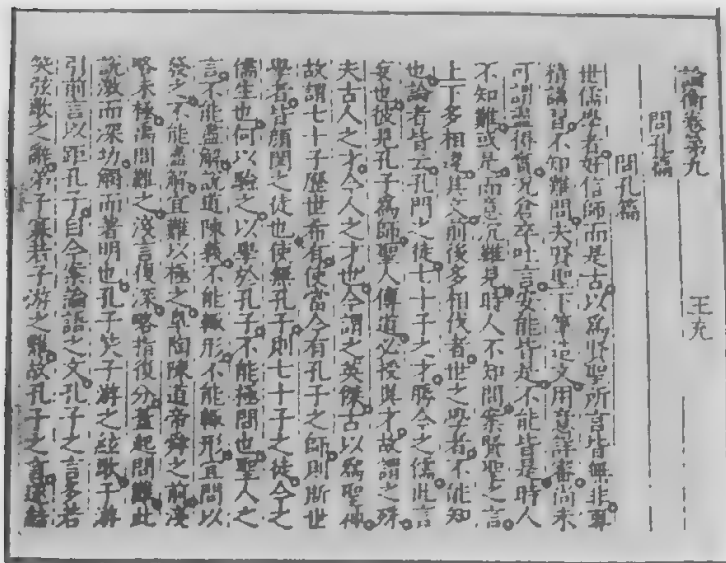 論衡卷第九
王充
問孔篇
問孔篇
世儒學者好信師而是古以爲賢聖所言皆無非專
精講習不知難問夫賢聖下筆造文用意詳審尚未
可謂盡得實況倉卒吐言安能皆是不能皆是時人
不知難或是而意沉難見時人不知問案賢聖之言
上下多相違其文前後多相伐者世之學者不能知
也論者皆云孔門之徒七十子之才勝今之儒此言
妄也彼見孔子爲師聖人傳道必授異才故謂之殊
夫古人之才今人之才也今謂之英傑古以爲聖神
故謂七十子歷世希有使當今有孔子之師則斯世
學者皆顏閔之徒也使無孔子則七十子之徒今之
儒生也何以驗之以學於孔子不能極問也聖人之
言不能盡解說道陳義不能輒形不能輒形宜問以
發之不能盡解宜難以極之臯陶陳道帝舜之前淺
略未極禹問難之淺言復深略指復分蓋起問難此
說激而深切觸而著明也孔子笑子游之弦歌子游
引前言以距孔子自今案論語之文孔子之言多若
笑弦歌之辭弟子寡若子游之難故孔子之言遂結